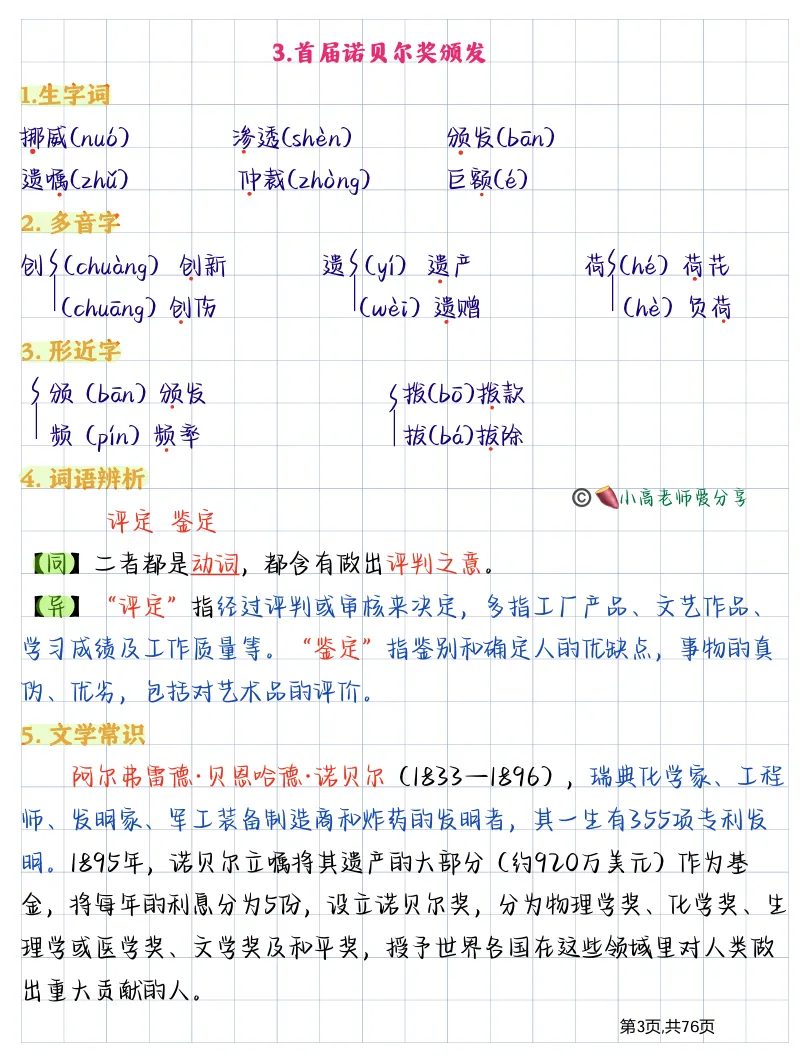 3.首届诺贝尔奖颁发
1.生字词
挪威(nuó) 渗透(shèn) 颁发(bān)
遗嘱(zhǔ) 仲裁(zhòng) 巨额(é)
2. 多音字
创{(chuàng) 创新 遗{(yí) 遗产 荷{(hé) 荷花
(chuāng) 创伤 (wèi) 遗赠 (hè) 负荷
3. 形近字
颁 (bān) 颁发 拨(bō)拨款
频 (pín) 频率 拔(bá)拔除
4. 词语辨析
©小高老师爱分享
评定 鉴定
【同】二者都是动词，都含有做出评判之意。
【异】“评定”指经过评判或审核来决定，多指工厂产品、文艺作品、
学习成绩及工作质量等。“鉴定”指鉴别和确定人的优缺点，事物的真
伪、优劣，包括对艺术品的评价。
5. 文学常识
阿尔弗雷德·贝恩哈德·诺贝尔（1833—1896），瑞典化学家、工程
师、发明家、军工装备制造商和炸药的发明者，其一生有355项专利发
明。1895年，诺贝尔立嘱将其遗产的大部分（约920万美元）作为基
金，将每年的利息分为5份，设立诺贝尔奖，分为物理学奖、化学奖、生
理学或医学奖、文学奖及和平奖，授予世界各国在这些领域里对人类做
出重大贡献的人。
第3页,共76页